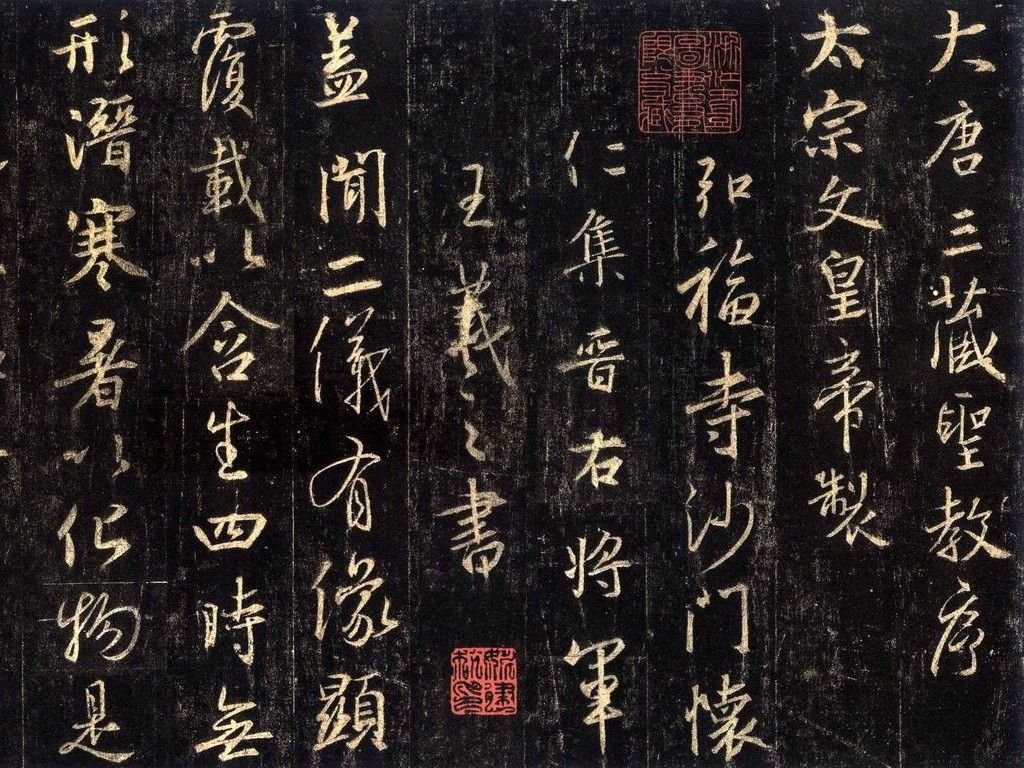 大唐三藏聖教序
太宗文皇帝製
弘福寺沙門懷
仁集晉右將軍
王羲之書
蓋聞二儀有像顯
覆載以含生四時無
形潛寒暑以化物是